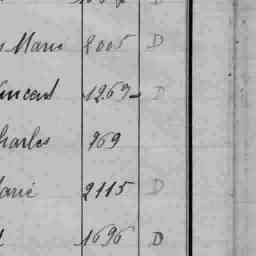 Marie 2005 D
Vincent 1269 D
Charles 969
Marie 2115 D
1696 D